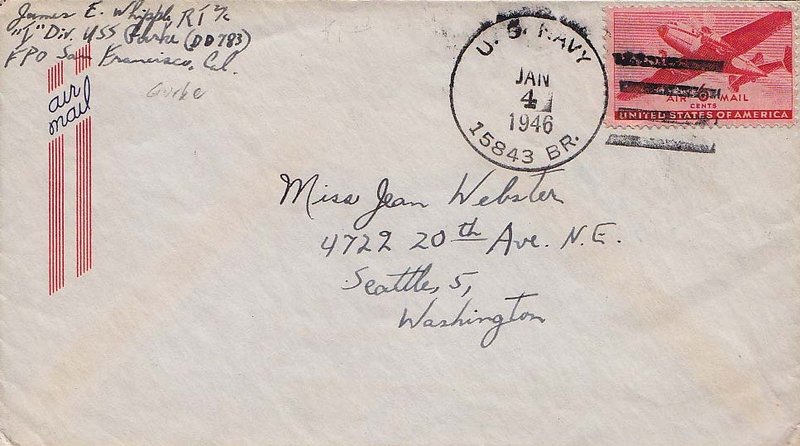 James E. Whipple, RT 2/c
"I" Div. USS Gurke (DD783)
FPO San Francisco, Cal.
Gurke
air
mail
U. S. NAVY
JAN
4
1946
15843 BR.
AIR 6 MAIL
CENTS
UNITED STATES OF AMERICA
Miss Jean Webster
4722 20th Ave. N.E.
Seattle, 5,
Washington